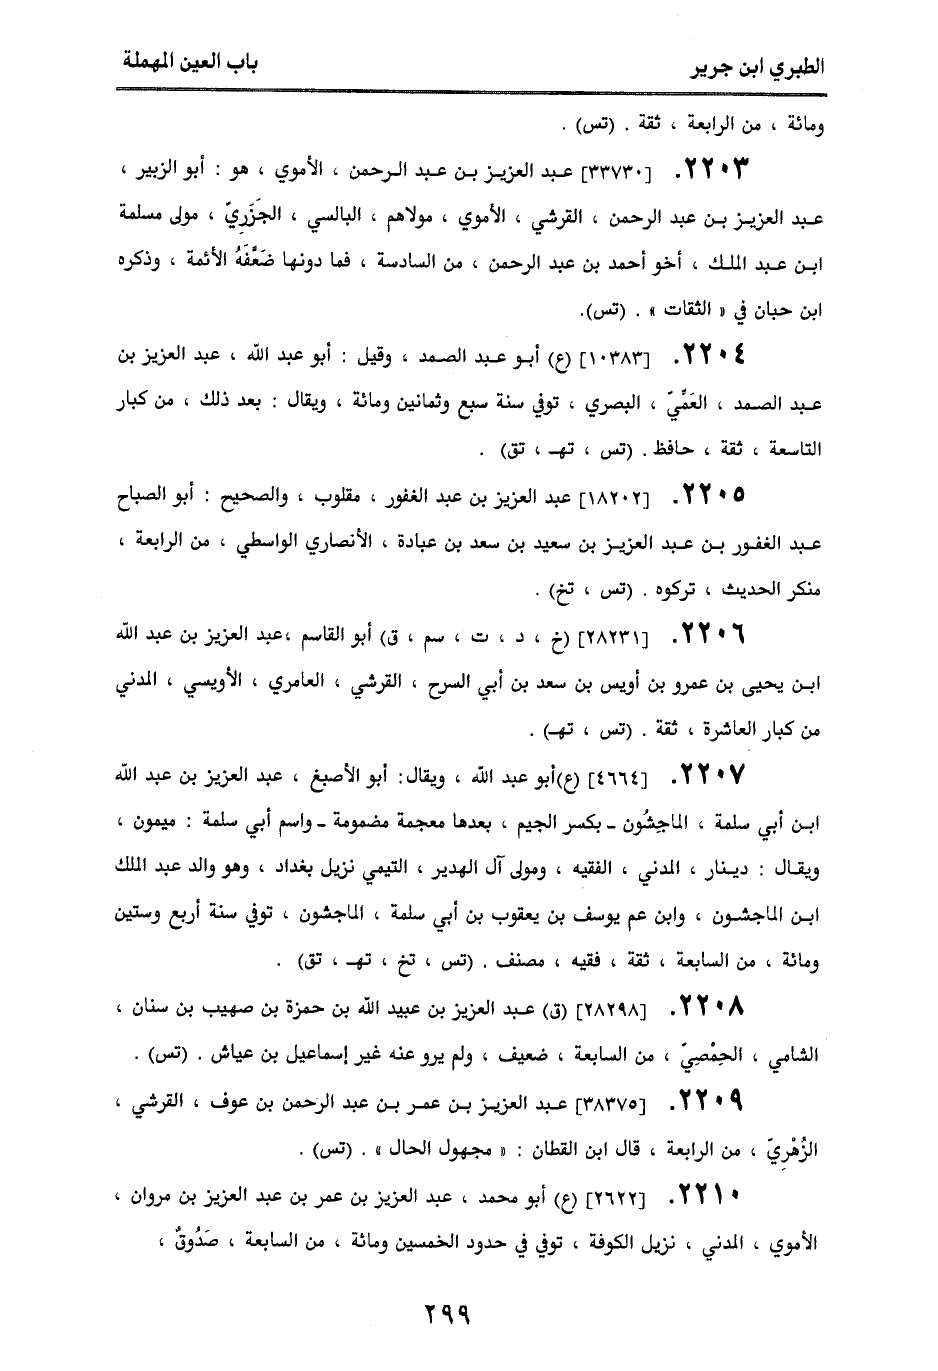 الطبري ابن جرير باب العين المهملة
ومائة ، من الرابعة ، ثقة . (تس) .
٢٢٠٣. [٣٣٧٣٠] عبد العزيز بن عبد الرحمن ، الأموي ، هو : أبو الزبير ،
عبد العزيز بن عبد الرحمن ، القرشي ، الأموي ، مولاهم ، البالسي ، الجَزَرِيّ ، مولى مسلمة
ابن عبد الملك ، أخو أحمد بن عبد الرحمن ، من السادسة ، فما دونها ضَعَّفَهُ الأئمة ، وذكره
ابن حبان في « الثقات » . (تس).
٢٢٠٤. [١٠٣٨٣] (ع) أبو عبد الصمد ، وقيل : أبو عبد الله ، عبد العزيز بن
عبد الصمد ، العَمِّيّ ، البصري ، توفي سنة سبع وثمانين ومائة ، ويقال : بعد ذلك ، من كبار
التاسعة ، ثقة ، حافظ . (تس ، تهـ ، تق) .
٢٢٠٥. [١٨٢٠٢] عبد العزيز بن عبد الغفور ، مقلوب ، والصحيح : أبو الصباح
عبد الغفور بن عبد العزيز بن سعيد بن سعد بن عبادة ، الأنصاري الواسطي ، من الرابعة ،
منكر الحديث ، تركوه . (تس ، تخ) .
٢٢٠٦. [٢٨٢٣١] (خ ، د ، ت ، سم ، ق) أبو القاسم ،عبد العزيز بن عبد الله
ابن يحيى بن عمرو بن أويس بن سعد بن أبي السرح ، القرشي ، العامري ، الأويسي ، المدني
من كبار العاشرة ، ثقة . (تس ، تهـ) .
٢٢٠٧. [٤٦٦٤] (ع)أبو عبد الله ، ويقال: أبو الأصبغ ، عبد العزيز بن عبد الله
ابن أبي سلمة ، الماجِشُون ـ بكسر الجيم ، بعدها معجمة مضمومة ـ واسم أبي سلمة : ميمون ،
ويقال : دينار ، المدني ، الفقيه ، ومولى آل الهدير ، التيمي نزيل بغداد ، وهو والد عبد الملك
ابن الماجشون ، وابن عم يوسف بن يعقوب بن أبي سلمة ، الماجشون ، توفي سنة أربع وستين
ومائة ، من السابعة ، ثقة ، فقيه ، مصنف . (تس ، تخ ، تهـ ، تق) .
٢٢٠٨. [٢٨٢٩٨] (ق) عبد العزيز بن عبيد الله بن حمزة بن صهيب بن سنان ،
الشامي ، الحِمْصِيّ ، من السابعة ، ضعيف ، ولم يرو عنه غير إسماعيل بن عياش . (تس) .
٢٢٠٩. [٣٨٣٧٥] عبد العزيز بن عمر بن عبد الرحمن بن عوف ، القرشي ،
الزُهْرِيّ ، من الرابعة ، قال ابن القطان : « مجهول الحال » . (تس) .
٢٢١٠. [٢٦٢٢] (ع) أبو محمد ، عبد العزيز بن عمر بن عبد العزيز بن مروان ،
الأموي ، المدني ، نزيل الكوفة ، توفي في حدود الخمسين ومائة ، من السابعة ، صَدُوقٌ ،
٢٩٩